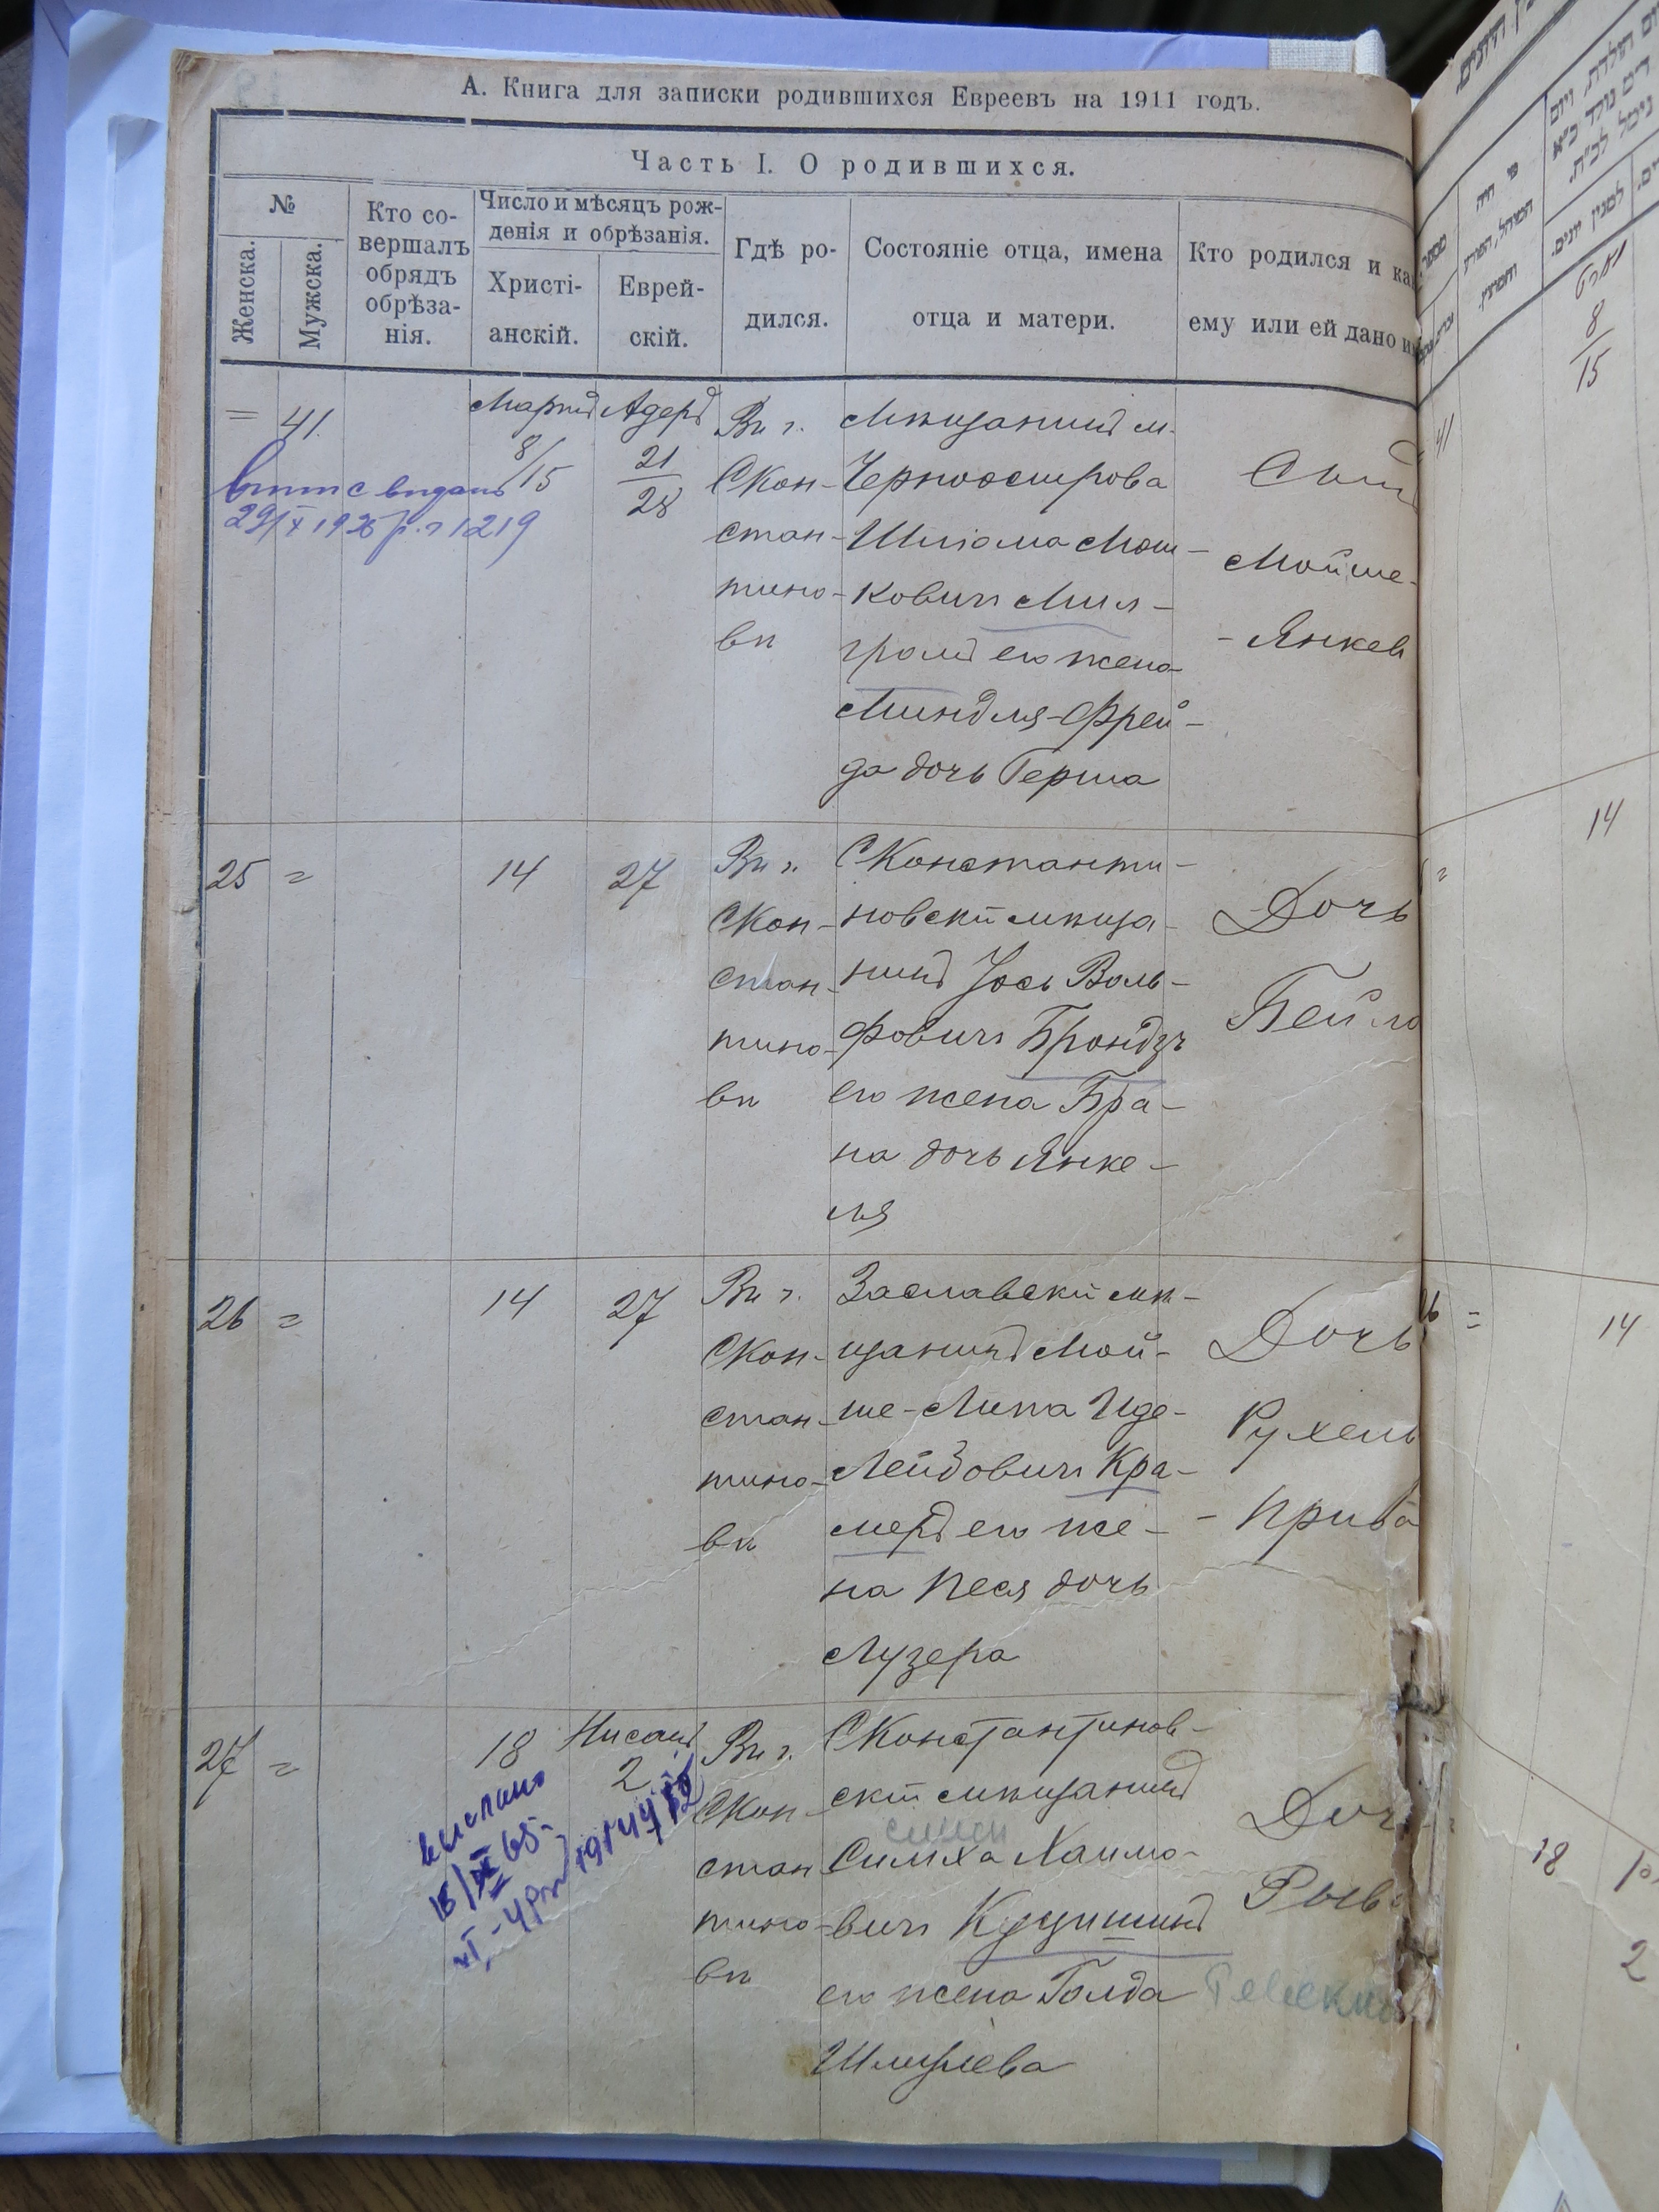 А. Книга для записки родившихся Евреевъ на 1911 годъ.
Часть I. О родившихся.
№
Женска.
Мужска.
Кто со-
вершалъ
обрядъ
обрѣза-
нія.
Число и мѣсяцъ рож-
денія и обрѣзанія.
Христі-
анскій.
Еврей-
скій.
Гдѣ ро-
дился.
Состояніе отца, имена
отца и матери.
Кто родился и ка
ему или ей дано и
= 41.
Мартъ
8/15
Адеръ
21
28
Въ г.
СКон-
стан-
тино-
вѣ
Мѣщанинъ м.
Черноострова
Шліома Мош-
ковичъ Мил-
громъ его жена
Миндля-Фрей-
да дочь Герша
Сынъ
Мойше-
- Янкев
29/X 1926 р. 1219
25 =
14
27
Въ г.
СКон-
стан-
тино-
вѣ
СКонстанти-
новскій мѣща-
нинъ Іось Воль-
фовичъ Брондзъ
его жена Бра-
на дочь Янке-
ля
Дочь
Бейла
26 =
14
27
Въ г.
СКон-
стан-
тино-
вѣ
Заславскій мѣ-
щанинъ Мой-
ше-Липа Иде-
Лейбовичъ Кра-
меръ его же-
на Песя дочь
Лузера
Дочь
Рухель
- Прива
27 =
18
Нисанъ
2
Въ г.
СКон-
стан
тино-
вѣ
СКонстантинов-
скій мѣщанинъ
Симха Хаимо-
вичъ
его жена Голда
Дочь
Рыв
выслано
41
8
15
14
26 =
14
18
2